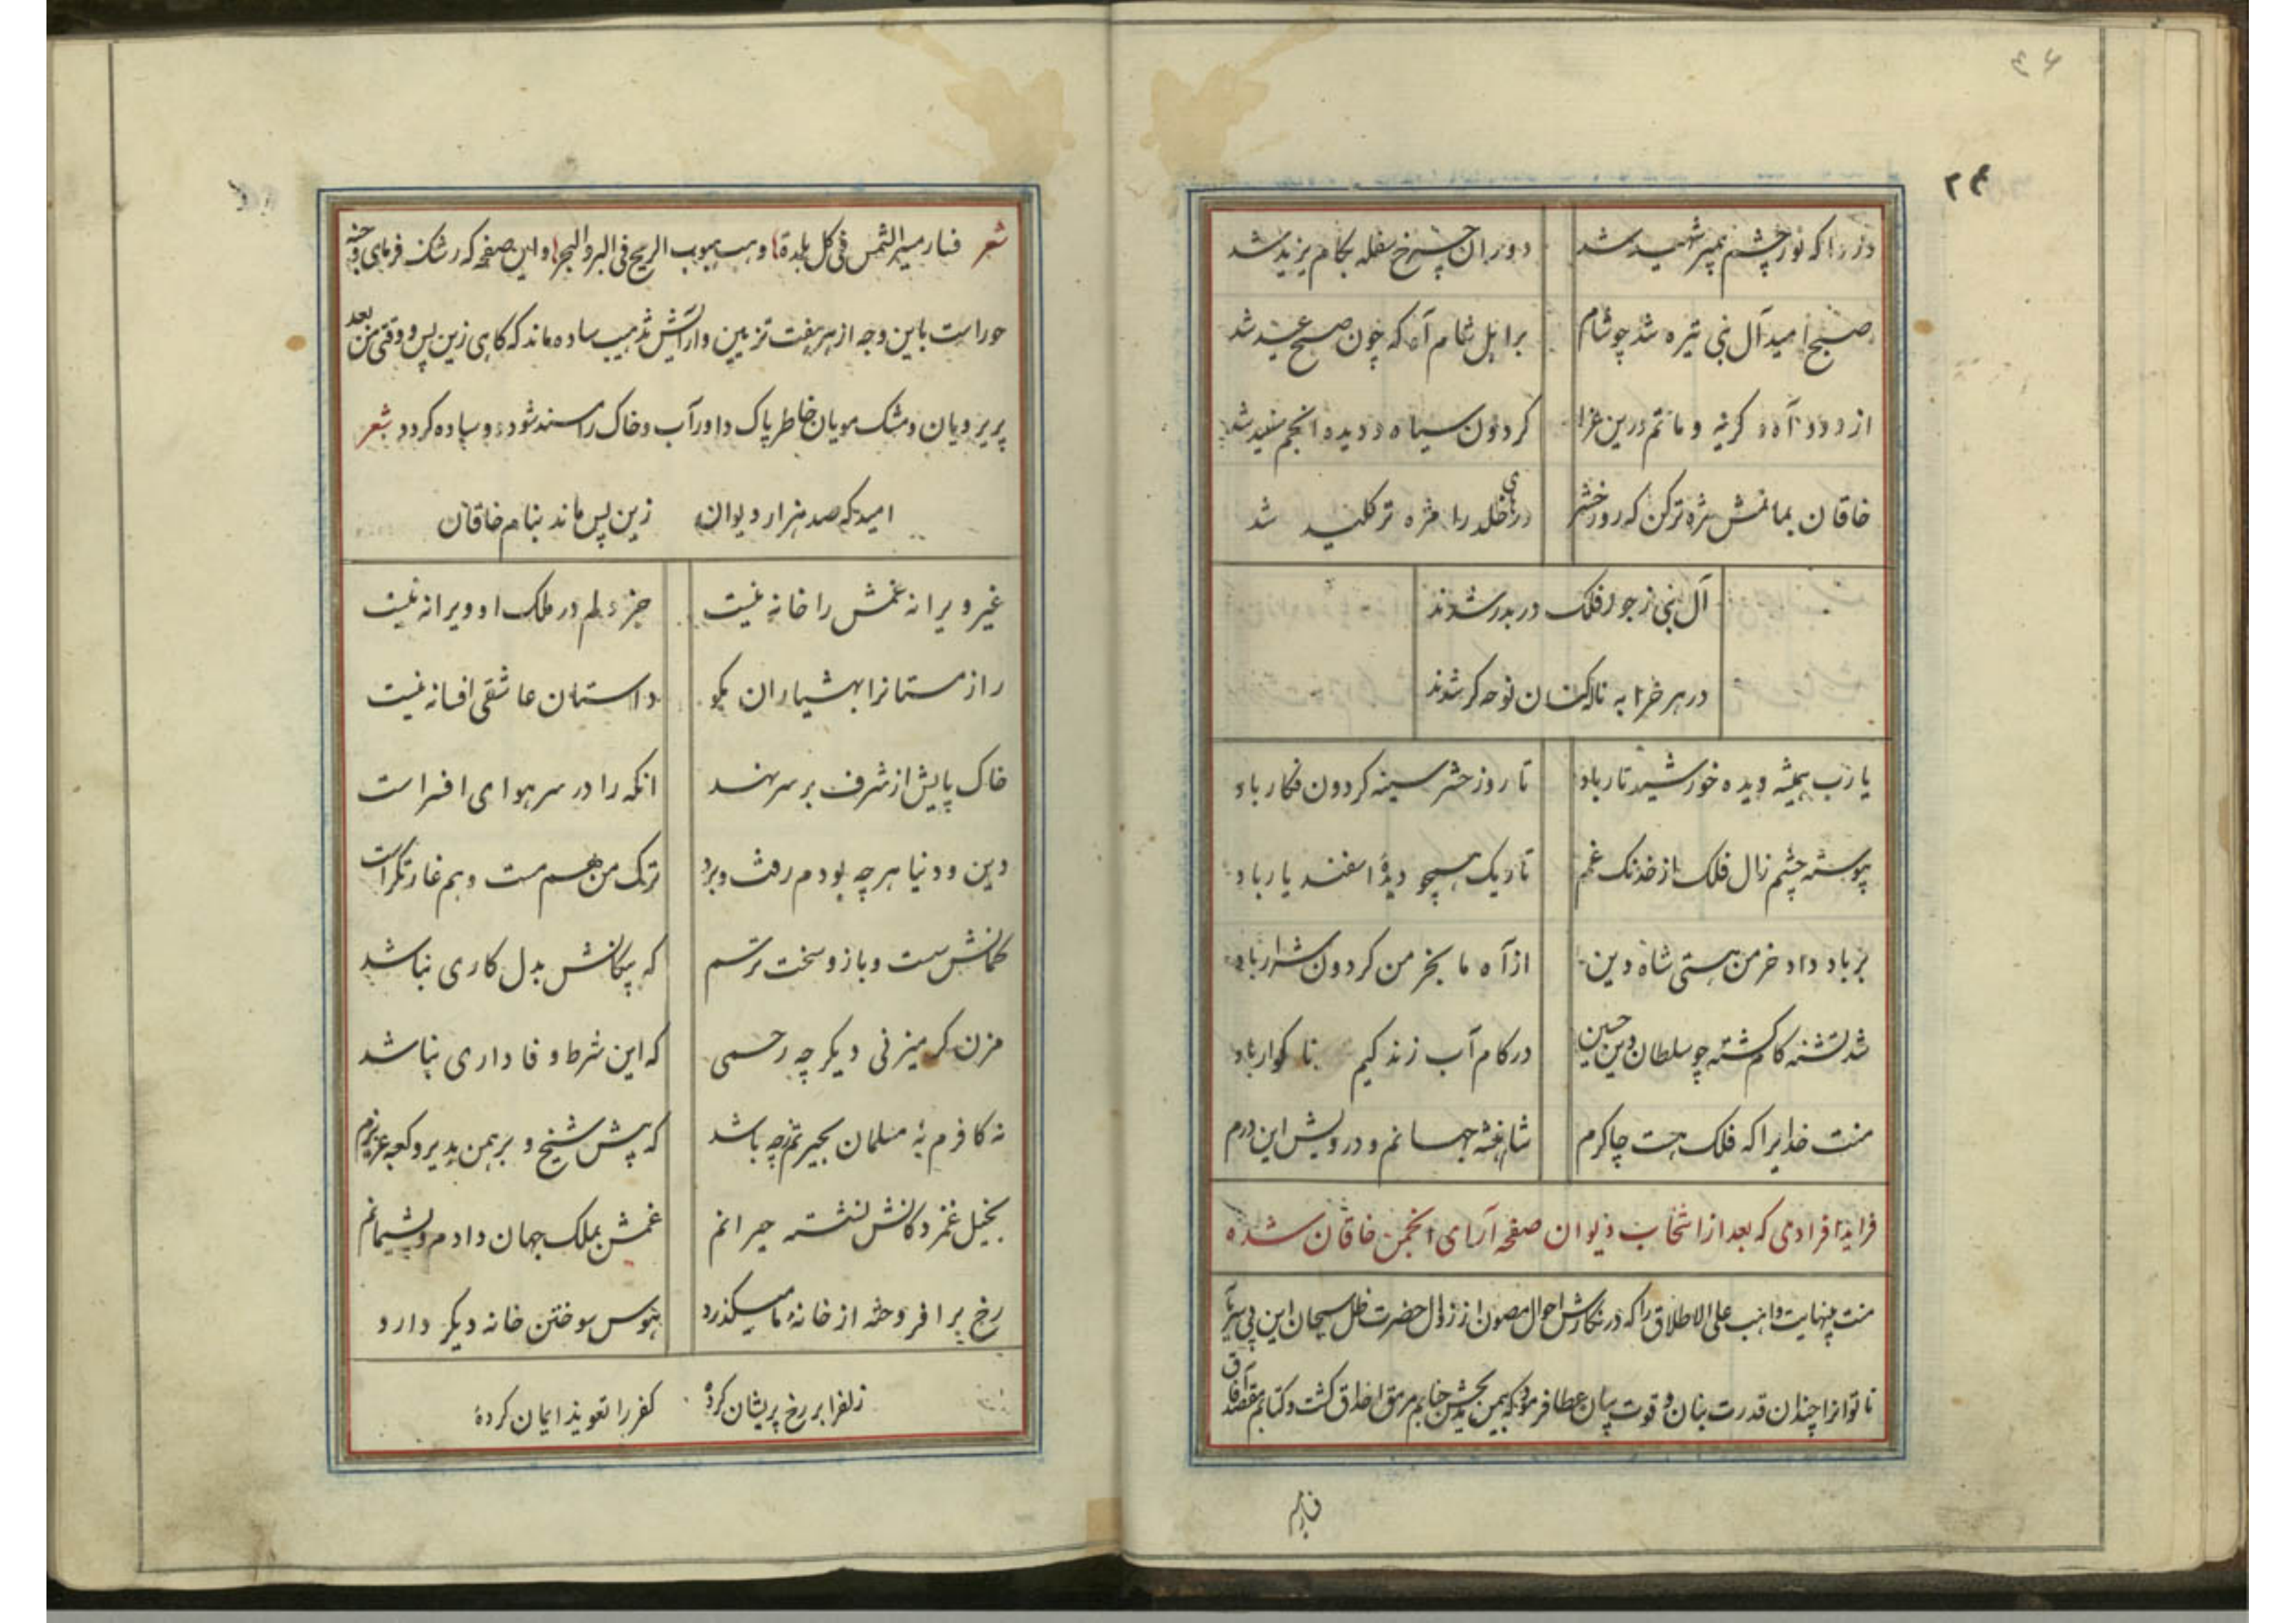 ۳۴
دردا که نور چشم پیمبر شهید شد دوران چرخ سفله بکام یزید شد
صبح امید آل نبی تیره شد چو شام بر اهل شام آه که چون صبح عید شد
از دود آه و کریه و ماتم درین عزا کردون سیاه و دیده انجم سفید شد
خاقان بماتمش مژه تر کن که روز حشر درهای خلد را مژه تر کلید شد
آل نبی ز جور فلک در بدر شدند
در هر خرابه ناله کنان نوحه کر شدند
یا رب همیشه دیده خورشید تار باد تا روز حشر سینه کردون فکار باد
پیوسته چشم زال فلک از خدنک غم تاریک همچو دیدهٔ اسفندیار باد
بر باد داد خرمن هستی شاه دین از آه ما بخرمن کردون شرار باد
شد تشنه کام کشته چو سلطان دین حسین در کام آب زندکیم نا کوار باد
منت خدایرا که فلک هست چاکرم شاهنشه جهانم و درویش این درم
فراید افرادی که بعد از انتخاب دیوان صفحه آرای انجمن خاقان شده
منت بینهایت واهب علی الاطلاق را که در نکارش احوال مصون از زوال حضرت ظل سبحان این بی سر و پا
ناتوانرا چندان قدرت بنان و قوت بیان عطا فرمود که بیمن بخشش خدایم مرمق اخلاق کشت و کتابم مقصد آفاق
شعر فسار مسیر الشمس فی کل بلدة وهب هبوب الریح فی البر والبحر و این صفحه که رشک فرمای وجنه
حوراست باین وجه از هر هفت تزیین و آرایش تذهیب ساده ماند که کاهی زین پس و وقتی من بعد
پریرویان و مشک مویان خاطر پاک داور آب و خاک را مسند شود و وساده کردد شعر
امید که صد هزار دیوان زین پس ماند بنام خاقان
غیر ویرانه غمش را خانه نیست جز دلم در ملک او ویرانه نیست
راز مستانرا بهشیاران مکو داستان عاشقی افسانه نیست
خاک پایش از شرف بر سر نهند انکه را در سر هوای افسر است
دین و دنیا هر چه بودم رفت و برد ترک من هم مست و هم غارتکر است
کمانش سست و بازو سخت ترسم که پیکانش بدل کاری نباشد
مزن کر میزنی دیکر چه رحمی که این شرط وفاداری نباشد
نه کافرم نه مسلمان بحیرتم چه باشد که پیش شیخ و برهمن بدیر و کعبه عزیزم
بخیل غمزدکانش نشسته حیرانم غمش بملک جهان دادم و پشیمانم
رخ برافروخته از خانهٔ ما میکذرد هوس سوختن خانه دیکر دارد
زلفرا بر رخ پریشان کردهٔ کفر را تعویذ ایمان کردهٔ